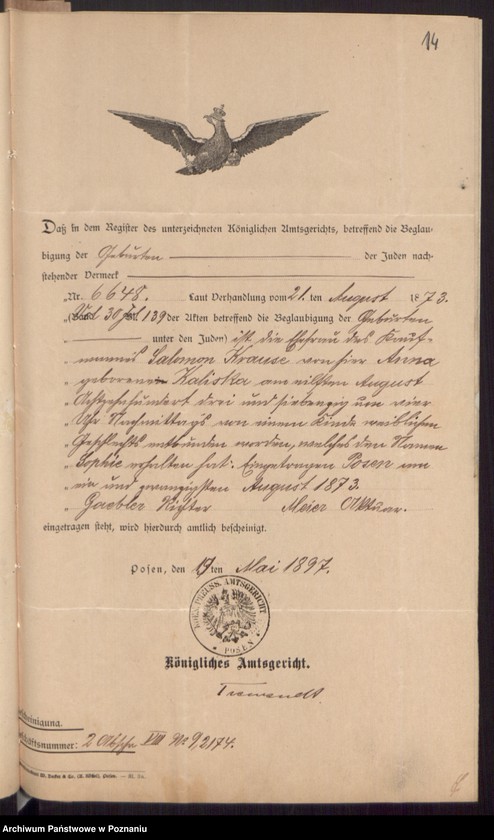 14
Daß in dem Register des unterzeichneten Königlichen Amtsgerichts, betreffend die Beglau-
bigung der Geburten der Juden nach-
stehender Vermerk
„Nr. 6648. Laut Verhandlung vom 21. ten August 1873.
„(Band Vol 30 Fol 139 der Akten betreffend die Beglaubigung der Geburten
„ unter den Juden) ist die Ehefrau des Kauf-
„ manns Salomon Krause von hier Anna
„ geborene Kaliska am eilften August
„ Achtzehnhundert drei und siebenzig um vier
„ Uhr Nachmittags von einem Kinde weiblichen
„ Geschlechts entbunden worden, welches den Namen
„ Sophie erhalten hat. Eingetragen Posen am
„ ein und zwanzigsten August 1873.
„ Gaebler Richter Meier Aktuar.
eingetragen steht, wird hierdurch amtlich bescheinigt.
Posen, den 19 ten Mai 1897.
KOEN. PREUSS. AMTSGERICHT
* POSEN *
Königliches Amtsgericht.
scheinigung.
schäftsnummer: 2 VIII No 92174.
Archiwum Państwowe w Poznaniu